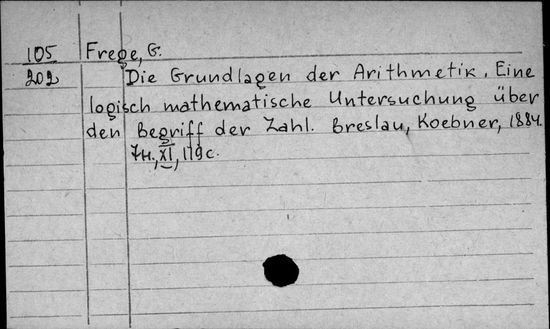 105 Frege, G.
202 Die Grundlagen der Arithmetik. Eine
logisch mathematische Untersuchung über
den Begriff der Zahl. Breslau, Koebner, 1884.
XI, 119 c.